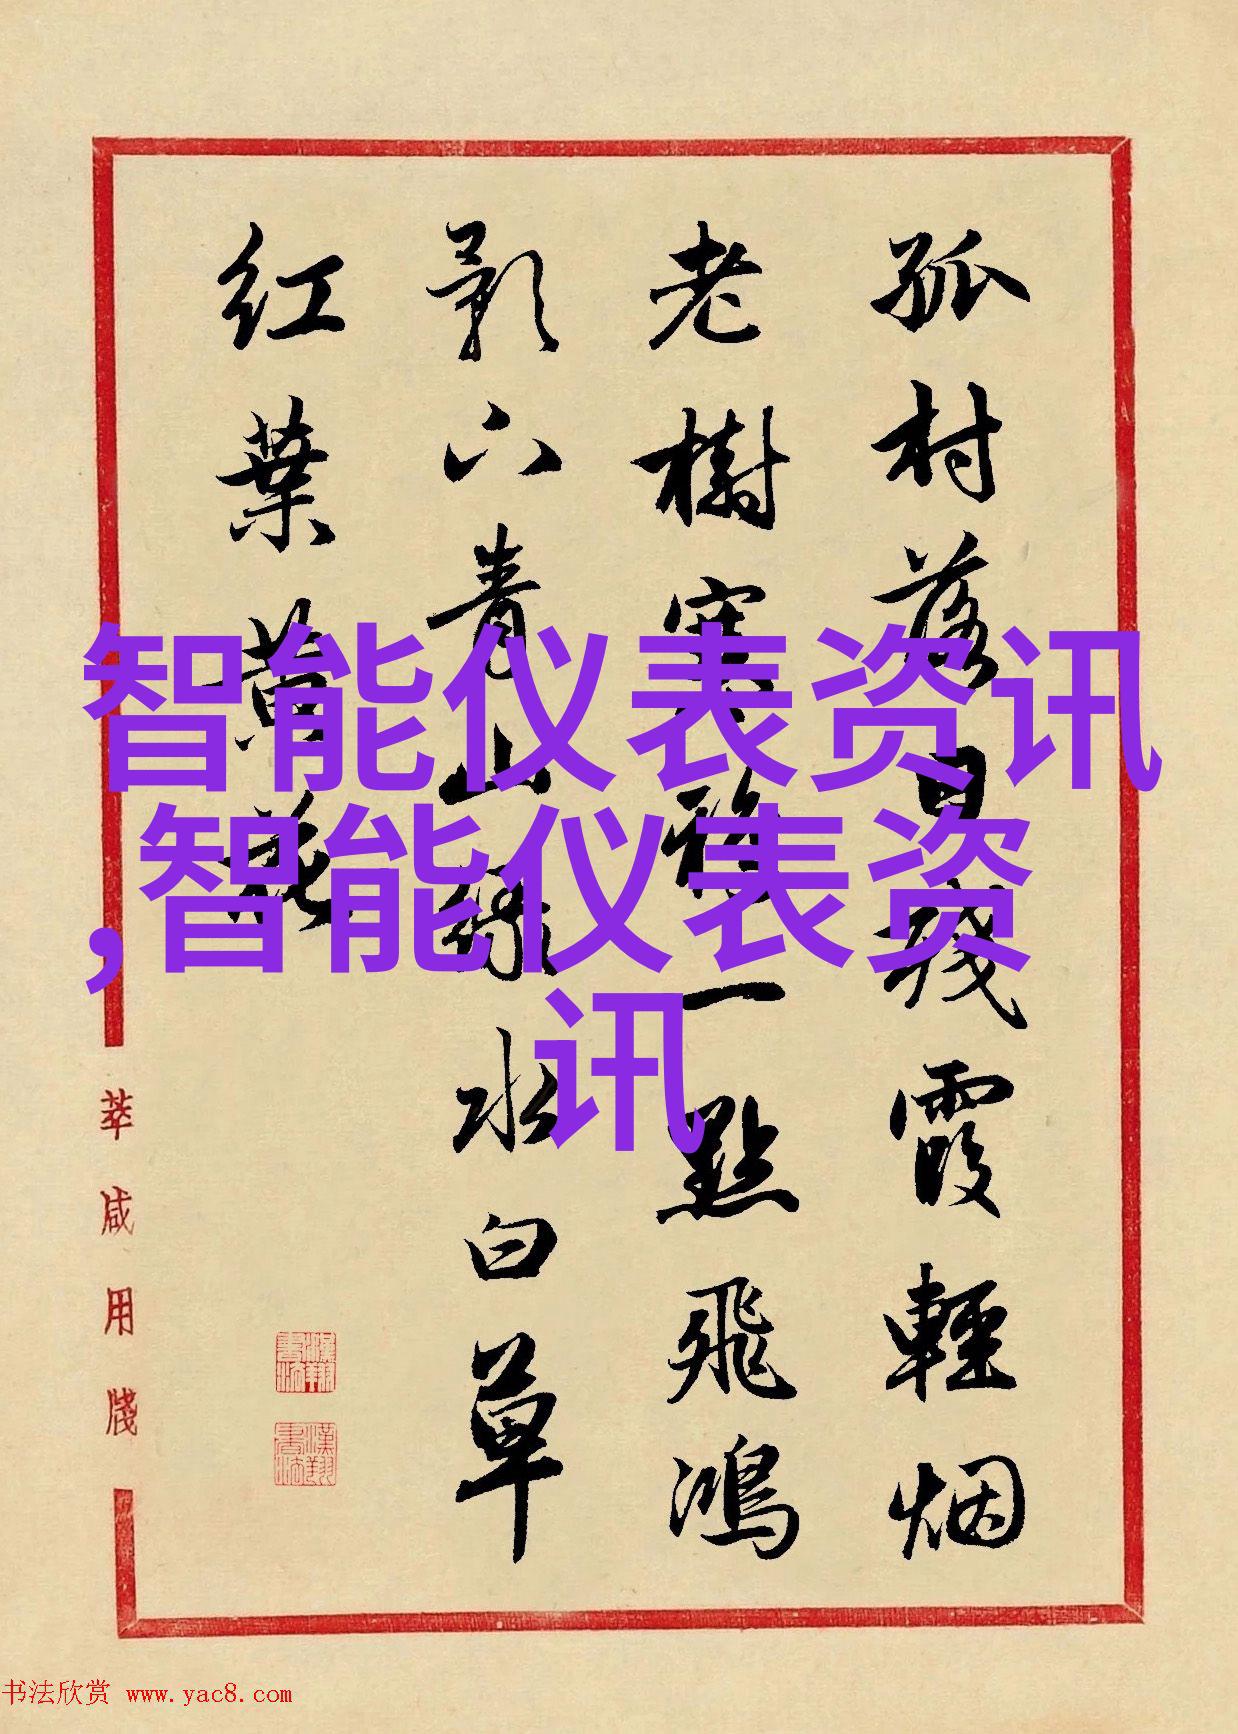 孤村落日残霞輕烟
老樹寒鴉一點飛鴻
影下青山綠水白草
红葉黄花
萃咸用牋
智能仪表资讯
,智能仪表资
讯
书法欣赏 www.yac8.com